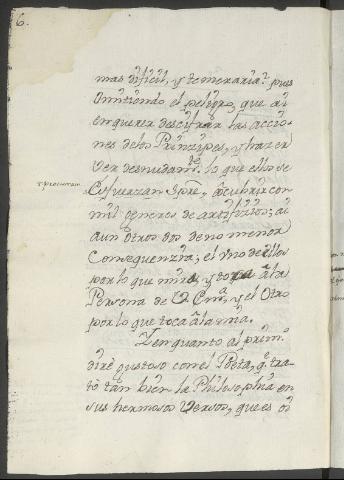 6.
mas dificil, y temeraria: pues
omitiendo el peligro, que ai
en querer descifrar las accio-
nes delos Principes, y hazer
ver desnudamte. lo que ellos se
esfuerzan Spre,
y procuran
acubrir con
mil generes de artificios; ai
aun otros dos de no menor
Consequenzia; el uno de ellos
por lo que mira, y toca âla
Persona de V. Emª. y el Otro
por lo que toca âla mia.
Y en quanto al prim.º
diré gustoso con el Poeta, q.e tra-
tó tan bien la Philosophia en
sus hermosos Versos, que es